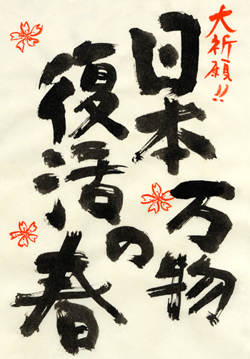 大祈願!!
日本
万物の
復活
春